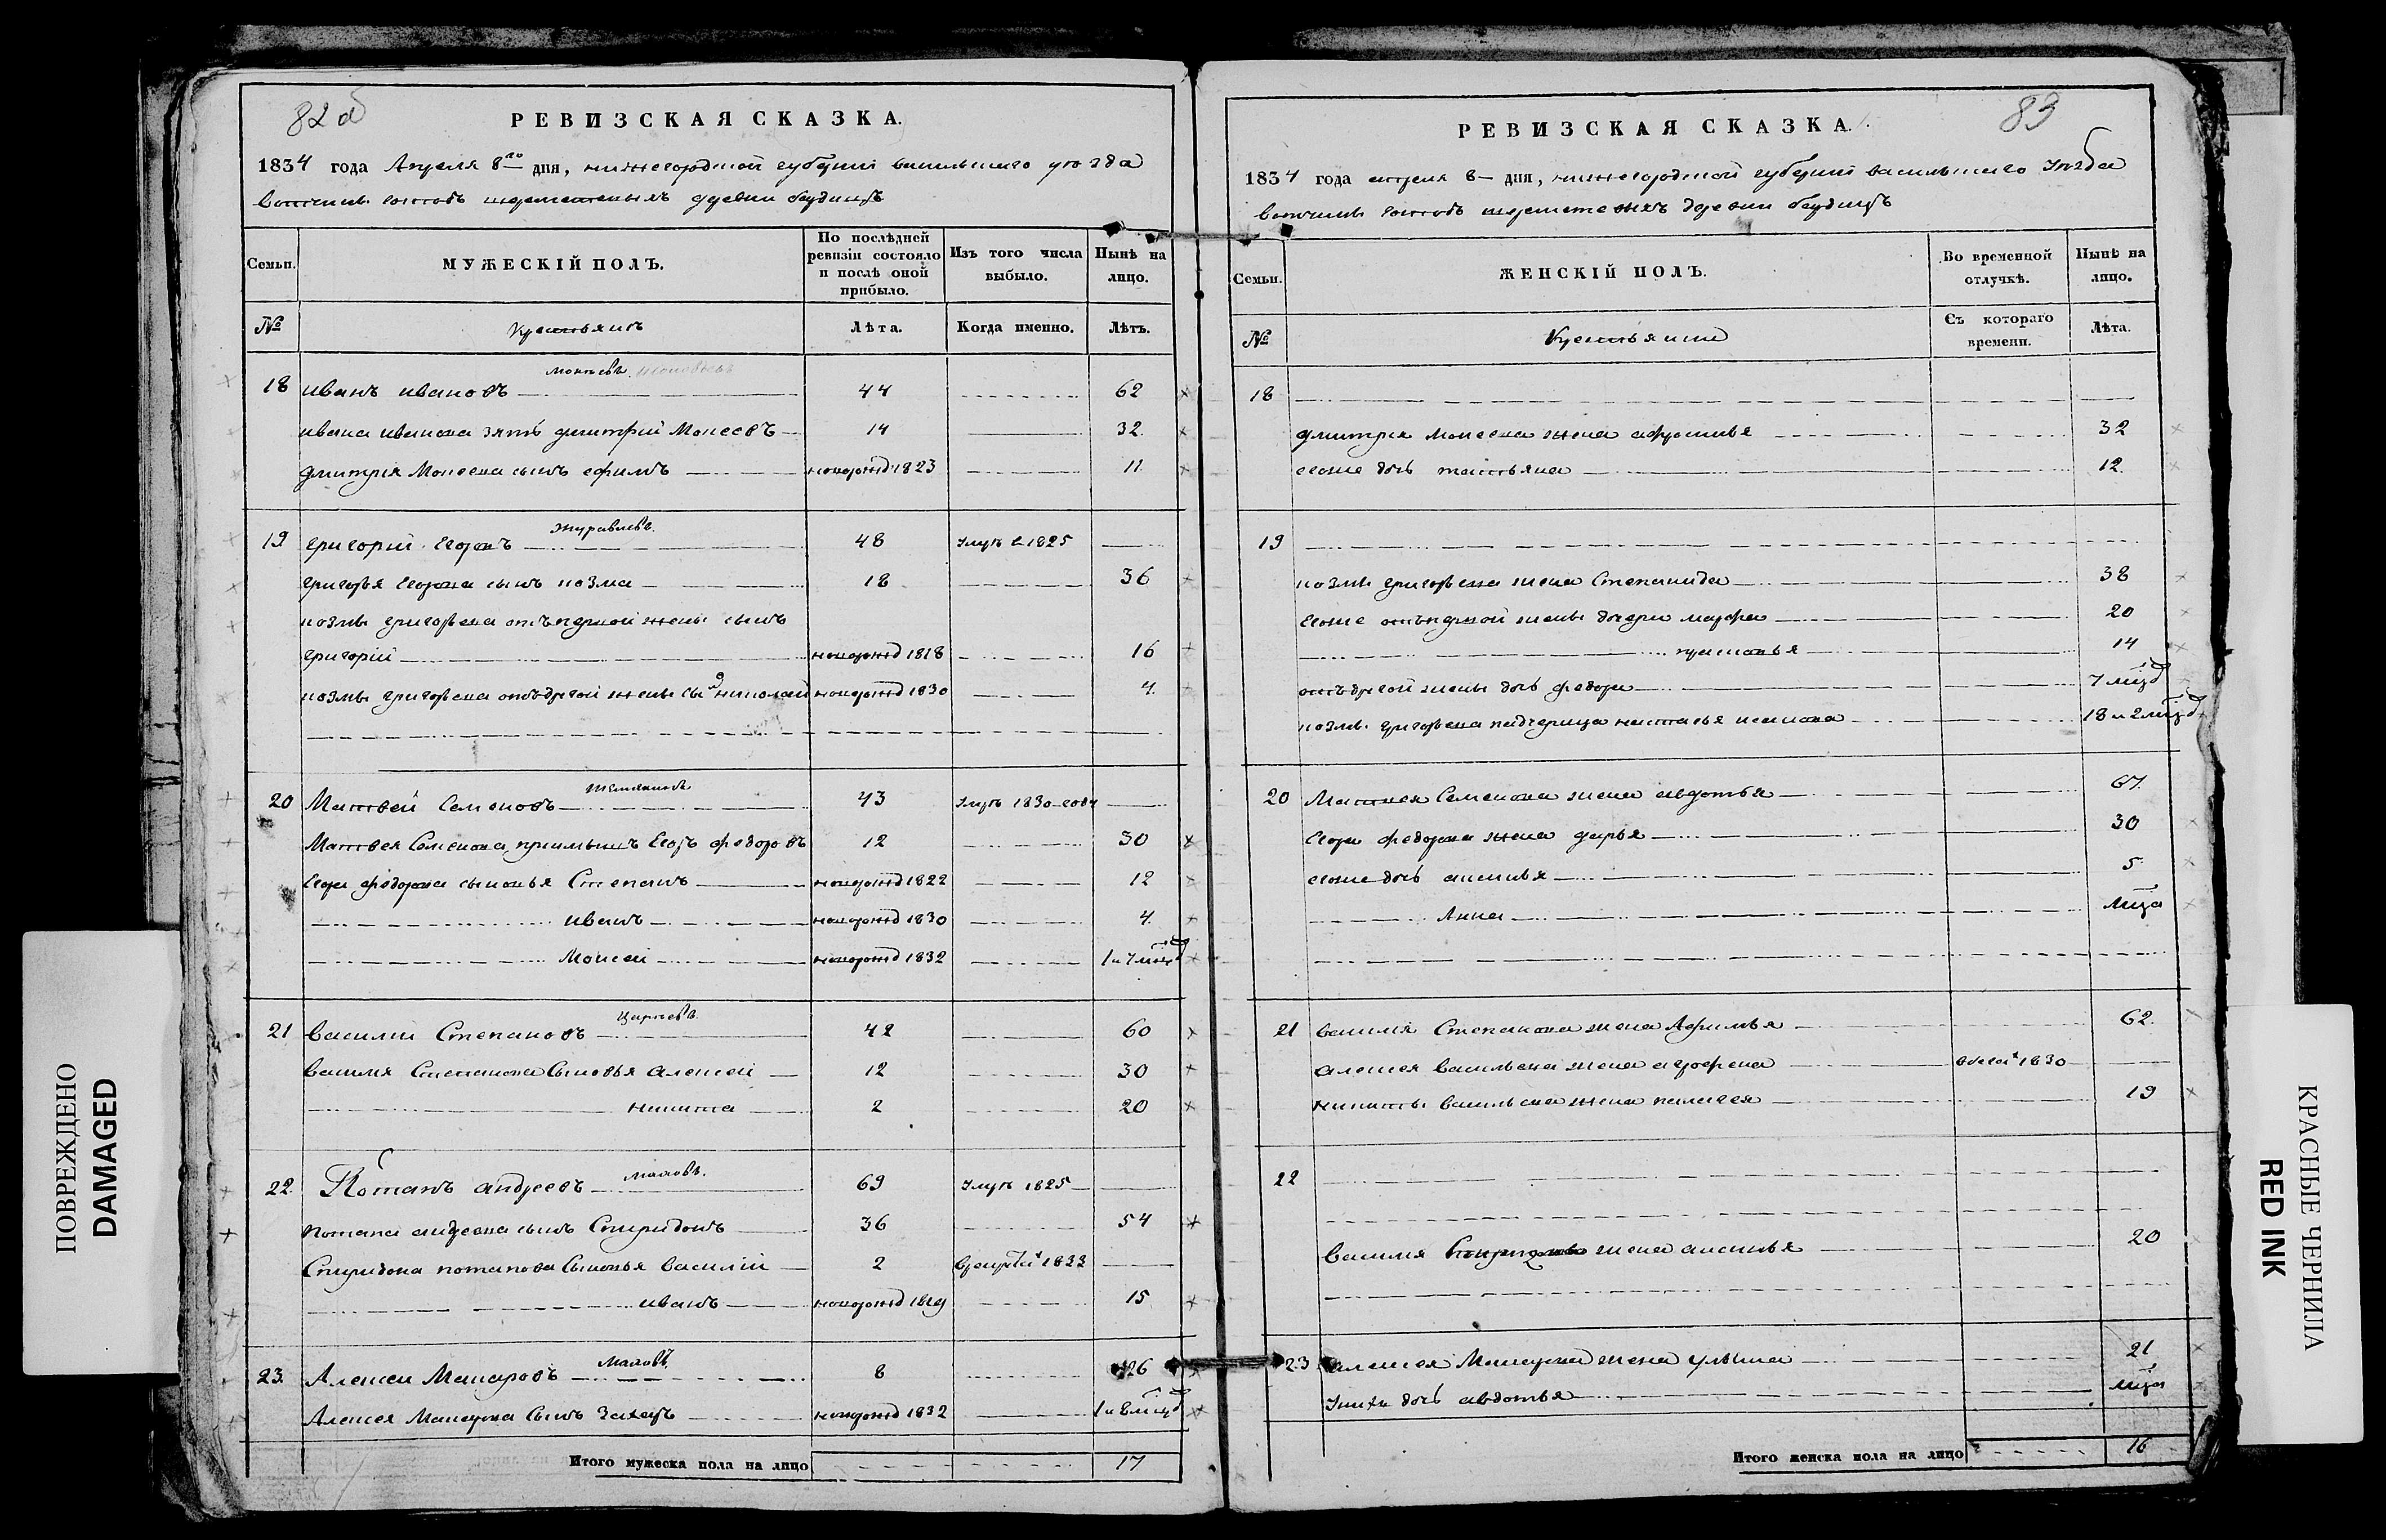 82 об
РЕВИЗСКАЯ СКАЗКА.
1834 года Апреля 8го дня, нижегородской губернии васильскаго уезда
вотчины господъ шереметевыхъ деревни
Семьи.
МУЖЕСКІЙ ПОЛЪ.
По послѣдней ревизіи состояло и послѣ оной прибыло.
Изъ того числа выбыло.
Нынѣ на лицо.
№
Крестьянъ
Лѣта.
Когда именно.
Лѣтъ.
18 иванъ ивановъ 44 62
ивана иванова зять дмитрій Моисеевъ 14 32
дмитрія Моисеева сынъ ефимъ новорожд 1823 11
Журавлевъ.
19 григорій Егоровъ 48 умре в 1825
григорья Егорова сынъ козма 18 36
козмы григорьева отъ первой жены сынъ
григорій новорожд 1818 16
козмы григорьева отъ другой жены сынъ николай новорожд 1830 4
20 Матвей Семеновъ 43 умре 1830 году
Матвея Семенова приимышъ Егоръ федоровъ 12 30
Егора федорова сыновья Степанъ новорожд 1822 12
иванъ новорожд 1830 4
Моисей новорожд 1832 1 и 7 мцд
Царьевъ
21 василій Степановъ 42 60
василья Степанова Сыновья алексей 12 30
никита 2 20
Маловъ.
22 Потапъ андреевъ 69 умре 1825
потапа андреева сынъ Спиридонъ 36 54
Спиридона потапова Сыновья василій 2 в рекруты 1833
иванъ новорожд 1819 15
Маловъ
23 Алексей Макаровъ 8 26
Алексея Макарова Сынъ Захаръ новорожд 1832 1 и 8 мцд
Итого мужеска пола на лицо 17
ПОВРЕЖДЕНО
DAMAGED
83
РЕВИЗСКАЯ СКАЗКА.
1834 года апреля 8 дня, нижегородской губерніи васильскаго Уезда
вотчины господъ шереметевыхъ деревни
Семьи.
ЖЕНСКІЙ ПОЛЪ.
Во временной отлучкѣ.
Нынѣ на лицо.
№
Крестьянки
Съ котораго времени.
Лѣта.
18
дмитрія моисеева жена афросинья 32
егоже дочь татьяна 12
19
козмы григорьева жена Степанида 38
егоже отъ первой жены дочери марфа 20
14
отъ другой жены дочь федора 7 мцд
козмы григорьева падчерица настасья 18 и 2 мцд
20 Матвея Семенова жена авдотья 67
Егора федорова жена дарья 30
егоже дочь аксинья 5
Анна мцa
21 василія Степанова жена Афимья 62
алексея васильева жена аграфена в бегах 1830
никиты васильева жена пелагея 19
22
василия жена аксинья 20
23 алексея Макарова жена ульяна 21
У них дочь авдотья мца
Итого женска пола на лицо 16
КРАСНЫЕ ЧЕРНИЛА
RED INK